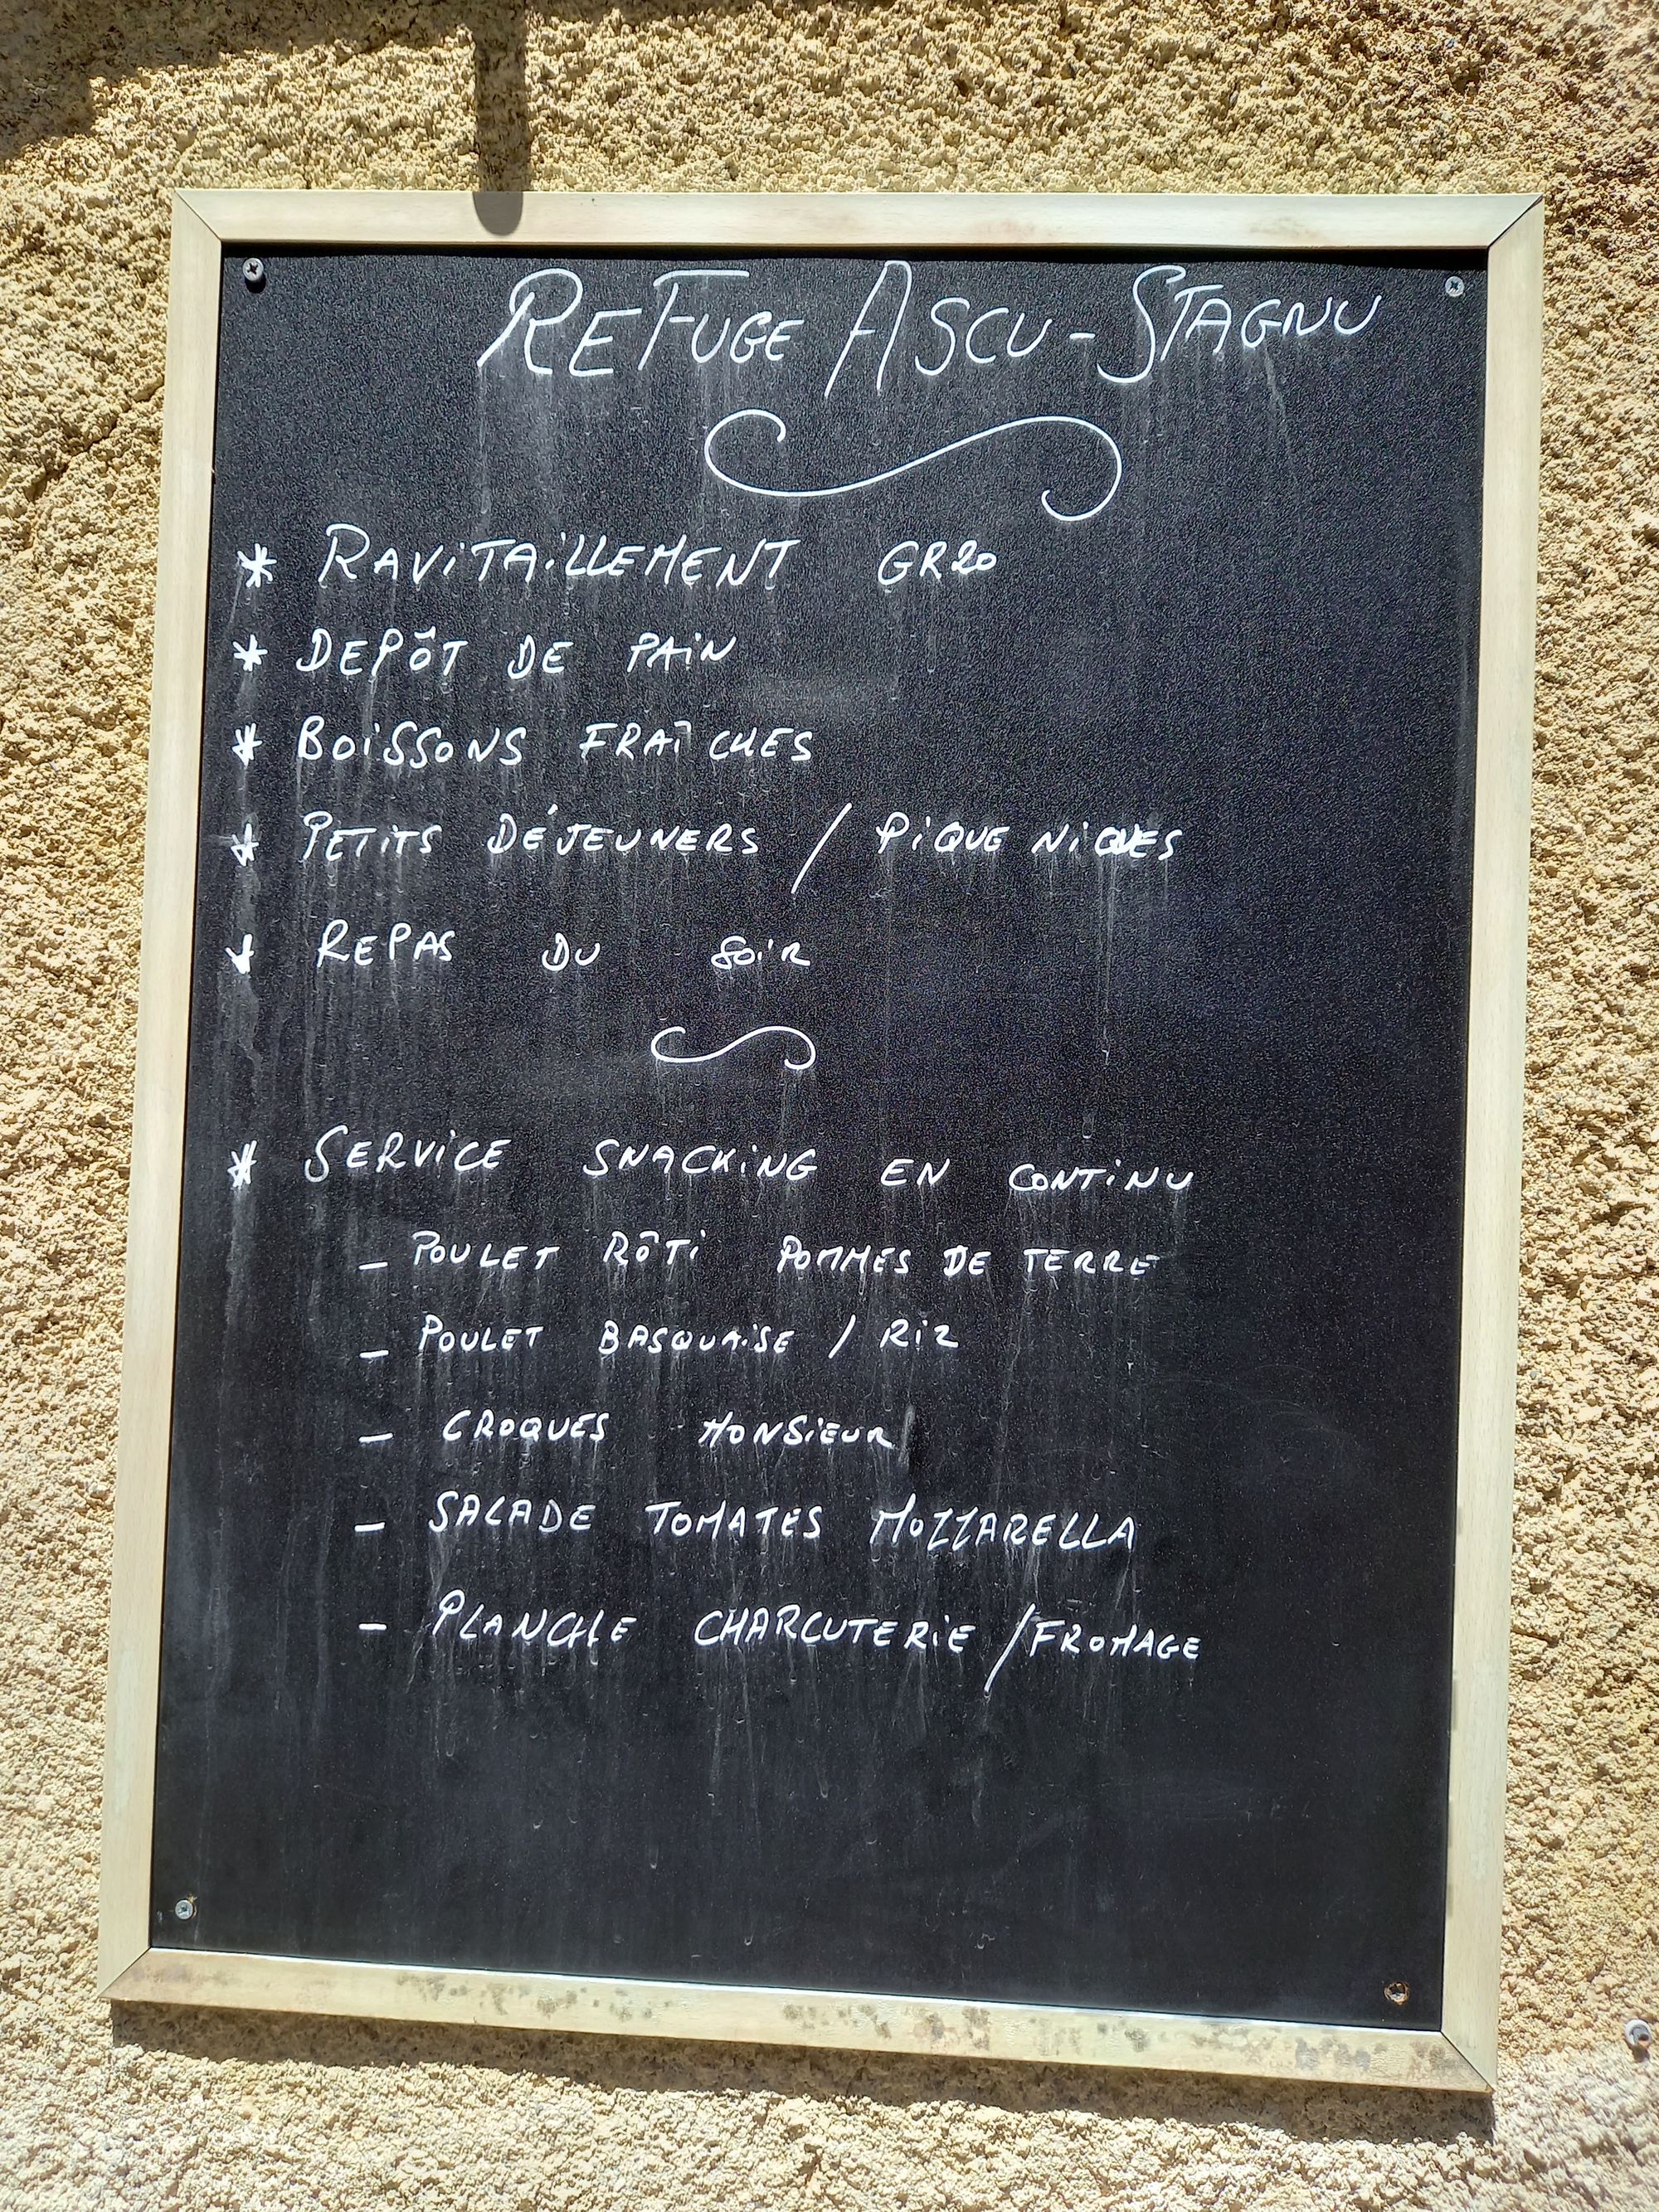 REFUGE ASCU-STAGNU
* RAVITAILLEMENT GR20
* DEPÔT DE PAIN
* BOISSONS FRAÎCHES
* PETITS DÉJEUNERS / PIQUE NIQUES
* REPAS DU SOIR
* SERVICE SNACKING EN CONTINU
- POULET RÔTI POMMES DE TERRE
- POULET BASQUAISE / RIZ
- CROQUES MONSIEUR
- SALADE TOMATES MOZZARELLA
- PLANCHE CHARCUTERIE / FROMAGE